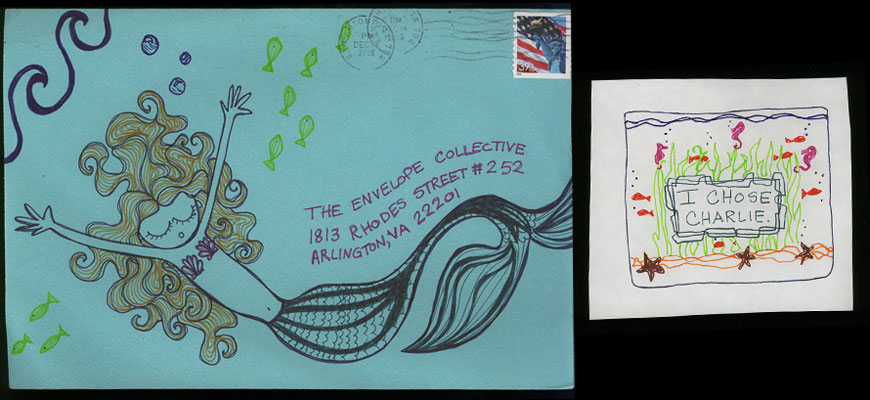 THE ENVELOPE COLLECTIVE
1813 RHODES STREET #252
ARLINGTON, VA 22201
39
I CHOSE
CHARLIE.